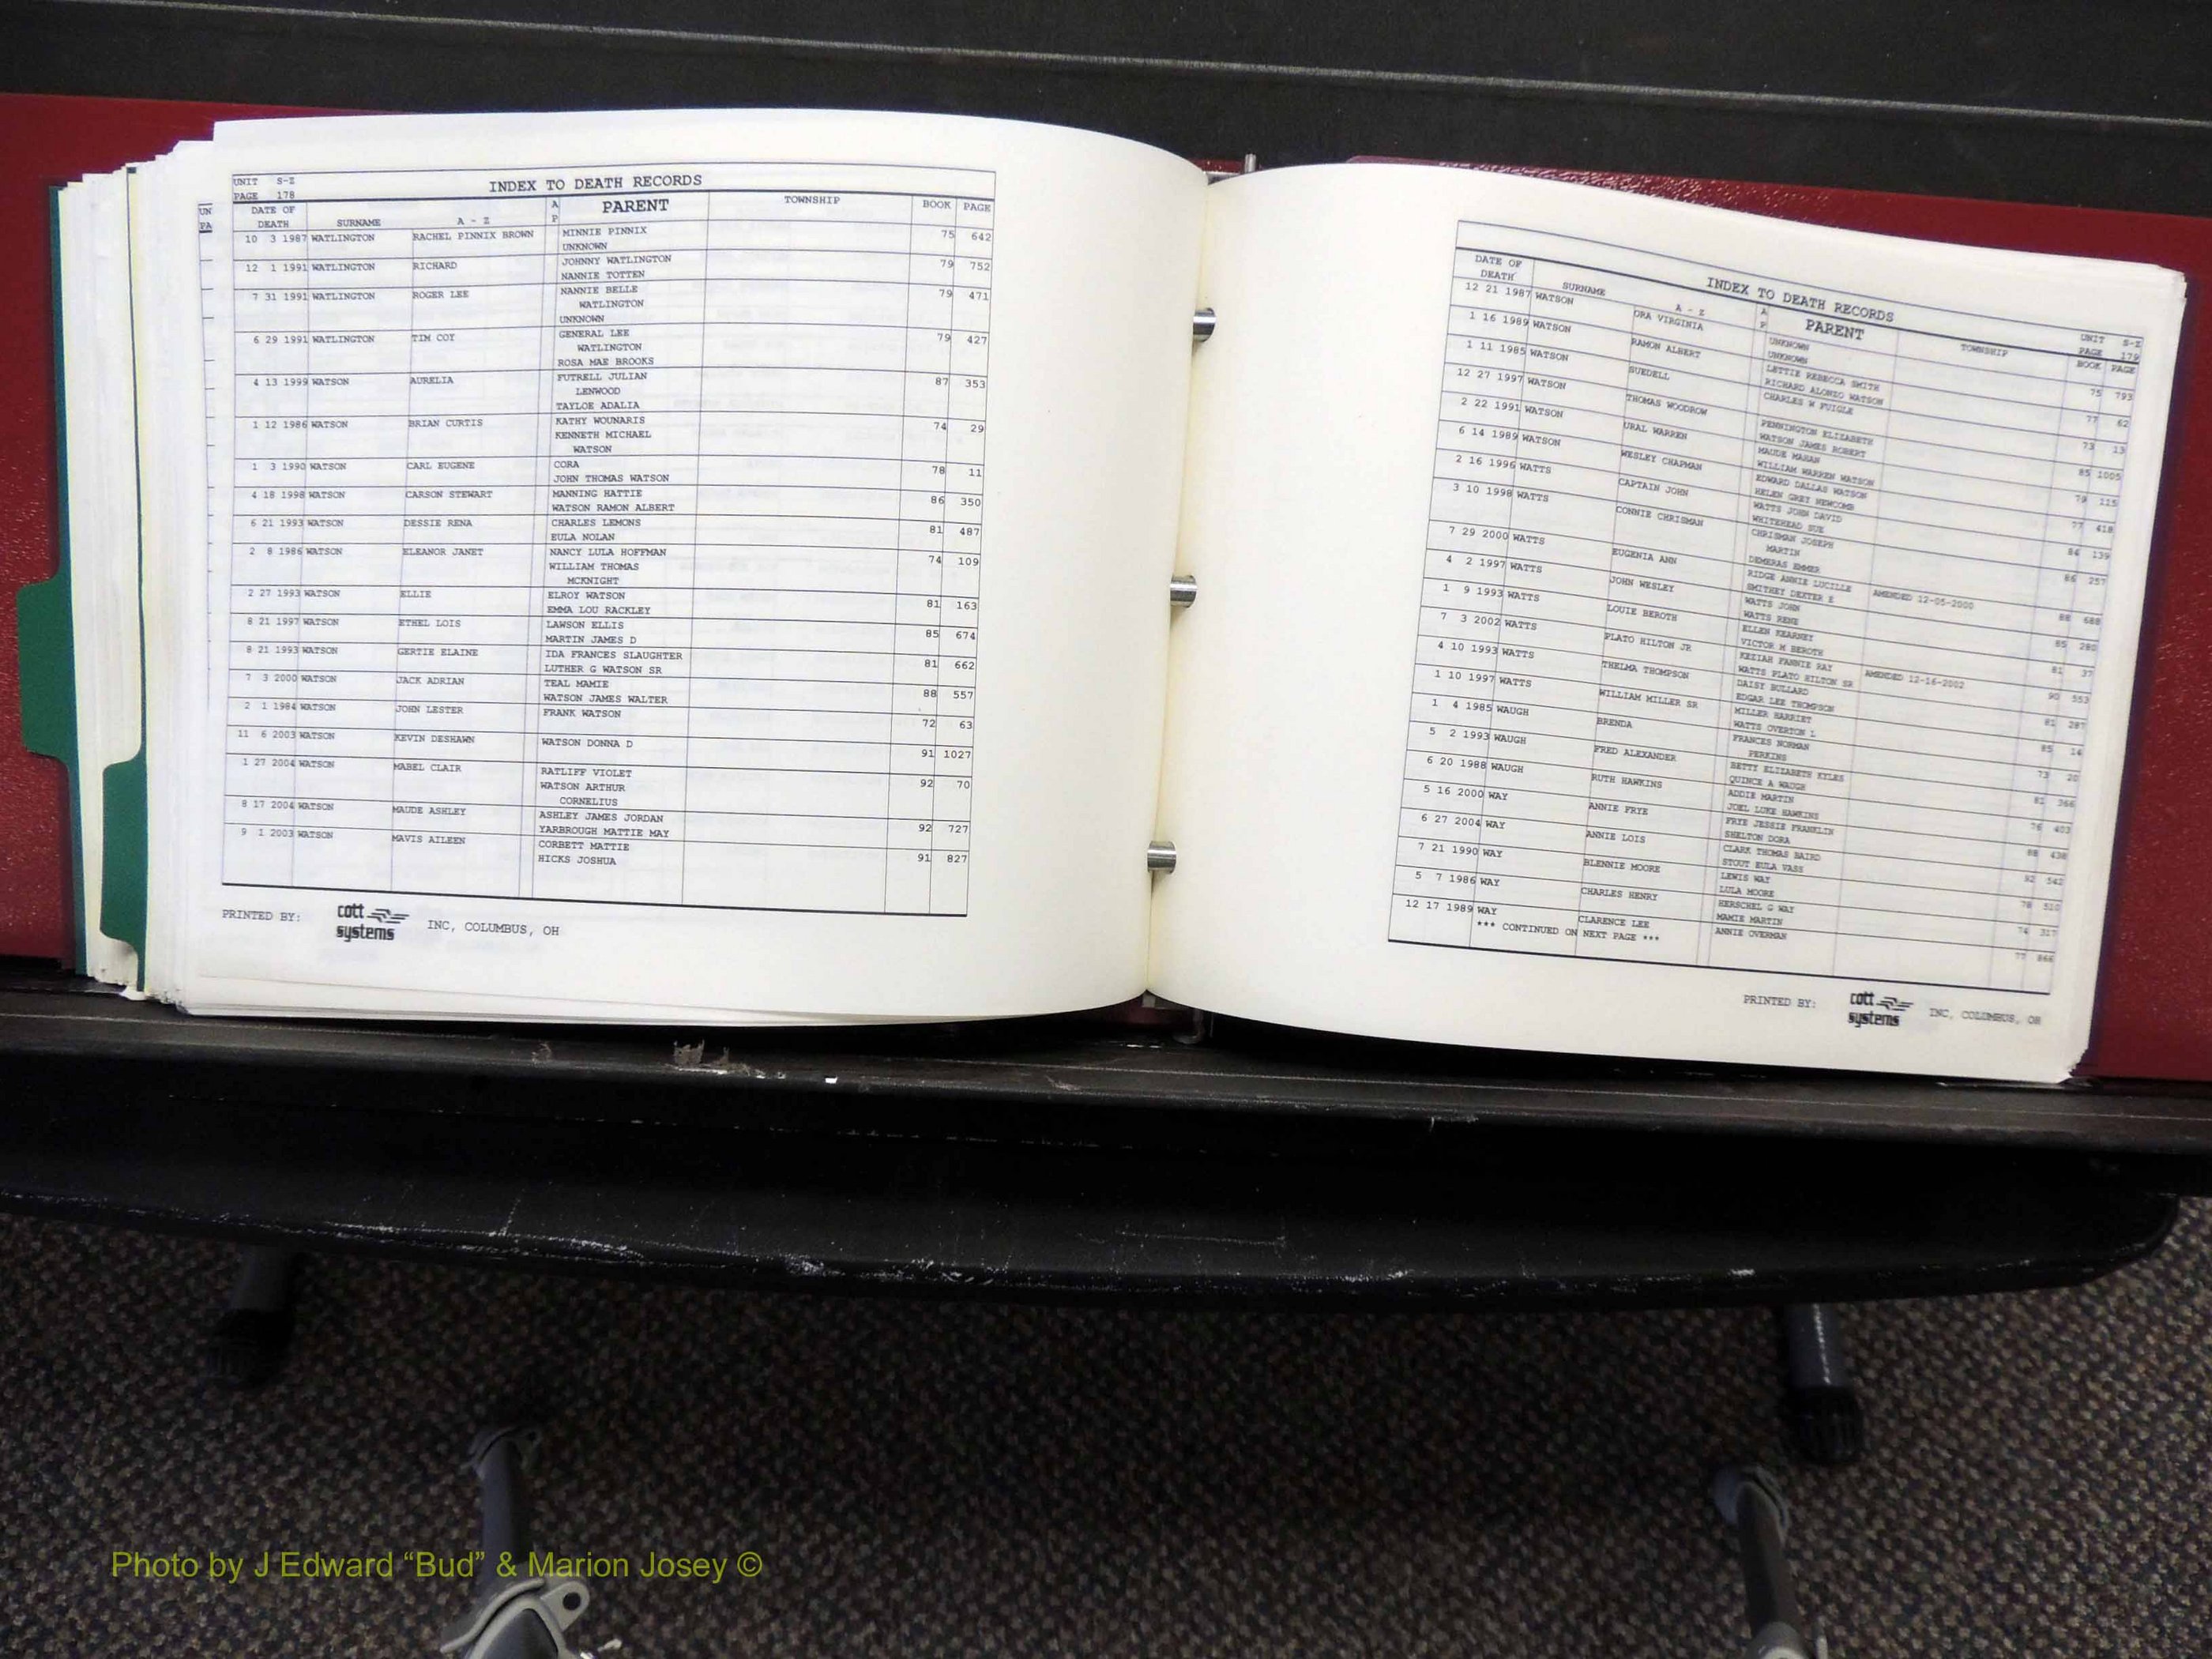 UN
PA
UNIT S-Z
PAGE 178
INDEX TO DEATH RECORDS
DATE OF DEATH SURNAME A - Z A P PARENT TOWNSHIP BOOK PAGE
10 3 1987 WATLINGTON RACHEL PINNIX BROWN MINNIE PINNIX 75 642
UNKNOWN
12 1 1991 WATLINGTON RICHARD JOHNNY WATLINGTON 79 752
NANNIE TOTTEN
7 31 1991 WATLINGTON ROGER LEE NANNIE BELLE 79 471
WATLINGTON
UNKNOWN
6 29 1991 WATLINGTON TIM COY GENERAL LEE 79 427
WATLINGTON
ROSA MAE BROOKS
4 13 1999 WATSON AURELIA FUTRELL JULIAN 87 353
LENWOOD
TAYLOE ADALIA
1 12 1986 WATSON BRIAN CURTIS KATHY WOUNARIS 74 29
KENNETH MICHAEL
WATSON
1 3 1990 WATSON CARL EUGENE CORA 78 11
JOHN THOMAS WATSON
4 18 1998 WATSON CARSON STEWART MANNING HATTIE 86 350
WATSON RAMON ALBERT
6 21 1993 WATSON DESSIE RENA CHARLES LEMONS 81 487
EULA NOLAN
2 8 1986 WATSON ELEANOR JANET NANCY LULA HOFFMAN 74 109
WILLIAM THOMAS
MCKNIGHT
2 27 1993 WATSON ELLIE ELROY WATSON 81 163
EMMA LOU RACKLEY
8 21 1997 WATSON ETHEL LOIS LAWSON ELLIS 85 674
MARTIN JAMES D
8 21 1993 WATSON GERTIE ELAINE IDA FRANCES SLAUGHTER 81 662
LUTHER G WATSON SR
7 3 2000 WATSON JACK ADRIAN TEAL MAMIE 88 557
WATSON JAMES WALTER
2 1 1984 WATSON JOHN LESTER FRANK WATSON 72 63
11 6 2003 WATSON KEVIN DESHAWN WATSON DONNA D 91 1027
1 27 2004 WATSON MABEL CLAIR RATLIFF VIOLET 92 70
WATSON ARTHUR
CORNELIUS
8 17 2004 WATSON MAUDE ASHLEY ASHLEY JAMES JORDAN 92 727
YARBROUGH MATTIE MAY
9 1 2003 WATSON MAVIS AILEEN CORBETT MATTIE 91 827
HICKS JOSHUA
PRINTED BY: cott systems INC, COLUMBUS, OH
INDEX TO DEATH RECORDS
UNIT S-Z
PAGE 179
DATE OF DEATH SURNAME A - Z A P PARENT TOWNSHIP BOOK PAGE
12 21 1987 WATSON ORA VIRGINIA UNKNOWN 75 793
UNKNOWN
1 16 1989 WATSON RAMON ALBERT LETTIE REBECCA SMITH 77 62
RICHARD ALONZO WATSON
1 11 1985 WATSON SUEDELL CHARLES W FUIGLE 73 13
12 27 1997 WATSON THOMAS WOODROW PENNINGTON ELIZABETH 85 1005
WATSON JAMES ROBERT
2 22 1991 WATSON URAL WARREN MAUDE MAHAN 79 115
WILLIAM WARREN WATSON
6 14 1989 WATSON WESLEY CHAPMAN EDWARD DALLAS WATSON 77 418
HELEN GREY NEWCOMB
2 16 1996 WATTS CAPTAIN JOHN WATTS JOHN DAVID 84 139
WHITEHEAD SUE
3 10 1998 WATTS CONNIE CHRISMAN CHRISMAN JOSEPH 86 257
MARTIN
DEMERAS EMMER
7 29 2000 WATTS EUGENIA ANN RIDGE ANNIE LUCILLE AMENDED 12-05-2000 88 688
SMITHEY DEXTER E
4 2 1997 WATTS JOHN WESLEY WATTS JOHN 85 280
WATTS RENE
1 9 1993 WATTS LOUIE BEROTH ELLEN KEARNEY 81 37
VICTOR M BEROTH
7 3 2002 WATTS PLATO HILTON JR KEZIAH FANNIE RAY AMENDED 12-16-2002 90 553
WATTS PLATO HILTON SR
4 10 1993 WATTS THELMA THOMPSON DAISY BULLARD 81 287
EDGAR LEE THOMPSON
1 10 1997 WATTS WILLIAM MILLER SR MILLER HARRIET 85 14
WATTS OVERTON L
1 4 1985 WAUGH BRENDA FRANCES NORMAN 73 20
PERKINS
5 2 1993 WAUGH FRED ALEXANDER BETTY ELIZABETH KYLES 81 366
QUINCE A WAUGH
6 20 1988 WAUGH RUTH HAWKINS ADDIE MARTIN 76 403
JOEL LUKE HAWKINS
5 16 2000 WAY ANNIE FRYE FRYE JESSIE FRANKLIN 88 438
SHELTON DORA
6 27 2004 WAY ANNIE LOIS CLARK THOMAS BAIRD 92 542
STOUT EULA VASS
7 21 1990 WAY BLENNIE MOORE LEWIS WAY 78 510
LULA MOORE
5 7 1986 WAY CHARLES HENRY HERSCHEL G WAY 74 317
MAMIE MARTIN
12 17 1989 WAY CLARENCE LEE ANNIE OVERMAN 77 866
*** CONTINUED ON NEXT PAGE ***
PRINTED BY: cott systems INC, COLUMBUS, OH
Photo by J Edward “Bud” & Marion Josey ©